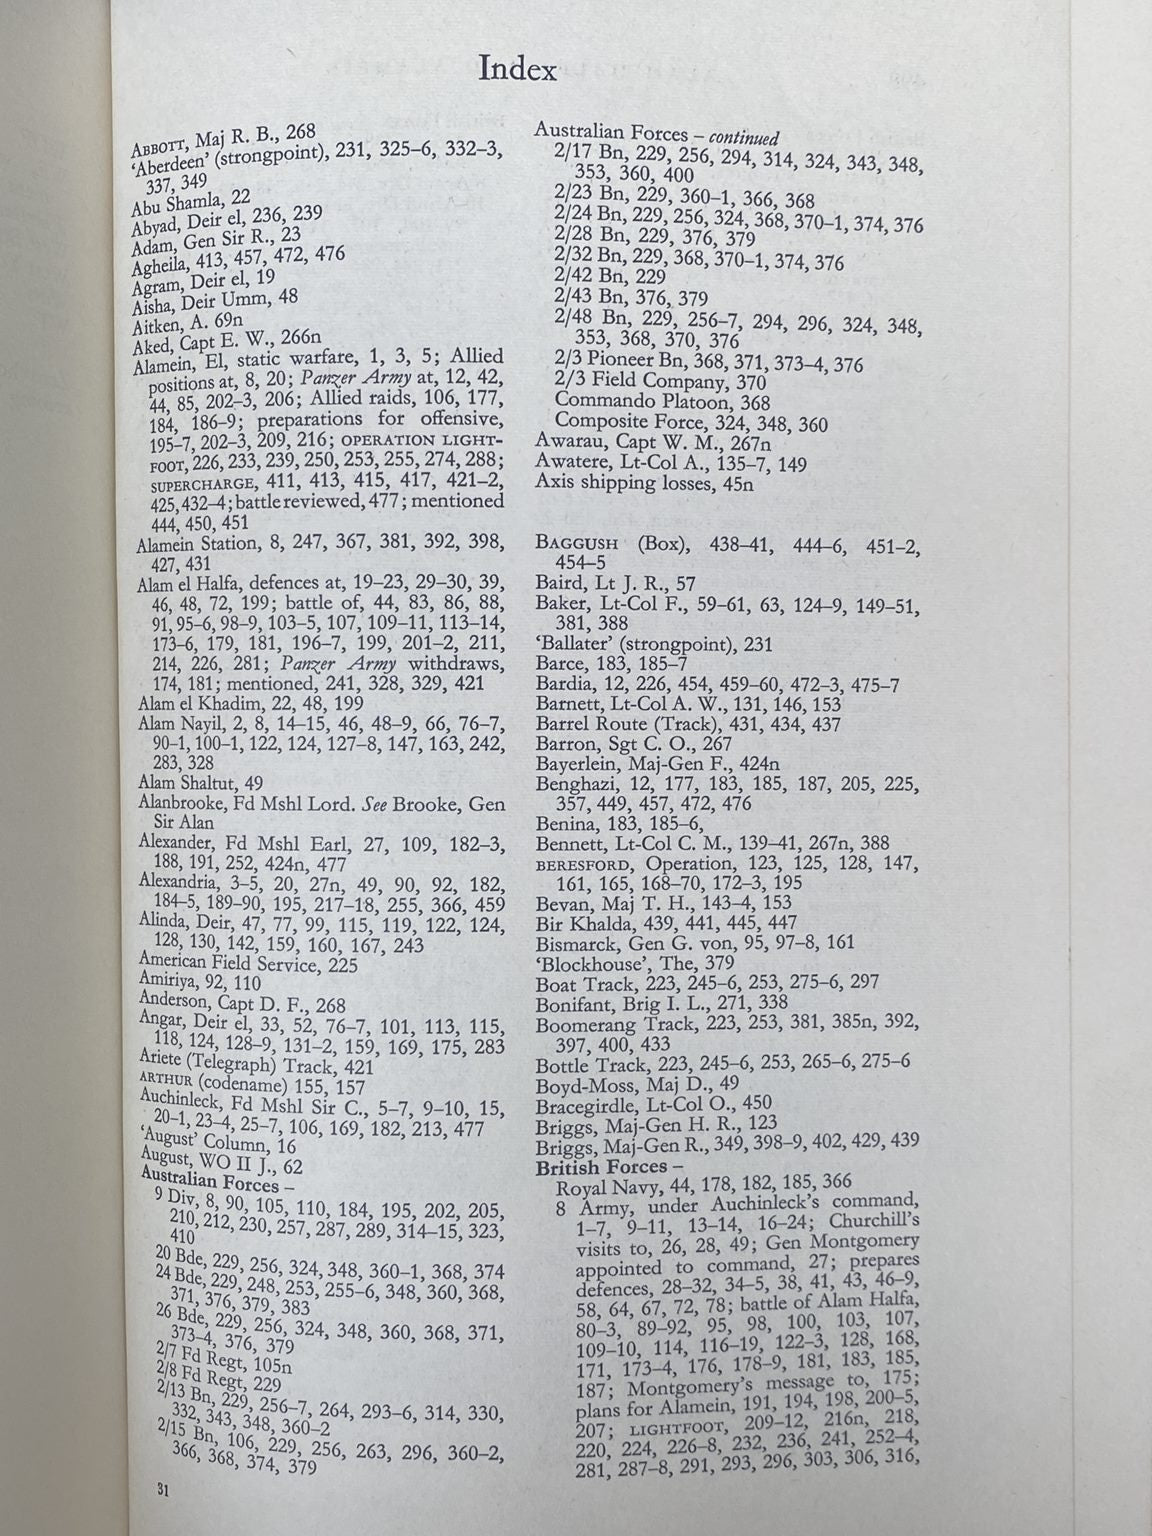 Index
ABBOTT, Maj R. B., 268
'Aberdeen' (strongpoint), 231, 325–6, 332–3,
337, 349
Abu Shamla, 22
Abyad, Deir el, 236, 239
Adam, Gen Sir R., 23
Agheila, 413, 457, 472, 476
Agram, Deir el, 19
Aisha, Deir Umm, 48
Aitken, A. 69n
Aked, Capt E. W., 266n
Alamein, El, static warfare, 1, 3, 5; Allied
positions at, 8, 20; Panzer Army at, 12, 42,
44, 85, 202–3, 206; Allied raids, 106, 177,
184, 186–9; preparations for offensive,
195–7, 202–3, 209, 216; OPERATION LIGHT-
FOOT, 226, 233, 239, 250, 253, 255, 274, 288;
SUPERCHARGE, 411, 413, 415, 417, 421–2,
425, 432–4; battle reviewed, 477; mentioned
444, 450, 451
Alamein Station, 8, 247, 367, 381, 392, 398,
427, 431
Alam el Halfa, defences at, 19–23, 29–30, 39,
46, 48, 72, 199; battle of, 44, 83, 86, 88,
91, 95–6, 98–9, 103–5, 107, 109–11, 113–14,
173–6, 179, 181, 196–7, 199, 201–2, 211,
214, 226, 281; Panzer Army withdraws,
174, 181; mentioned, 241, 328, 329, 421
Alam el Khadim, 22, 48, 199
Alam Nayil, 2, 8, 14–15, 46, 48–9, 66, 76–7,
90–1, 100–1, 122, 124, 127–8, 147, 163, 242,
283, 328
Alam Shaltut, 49
Alanbrooke, Fd Mshl Lord. See Brooke, Gen
Sir Alan
Alexander, Fd Mshl Earl, 27, 109, 182–3,
188, 191, 252, 424n, 477
Alexandria, 3–5, 20, 27n, 49, 90, 92, 182,
184–5, 189–90, 195, 217–18, 255, 366, 459
Alinda, Deir, 47, 77, 99, 115, 119, 122, 124,
128, 130, 142, 159, 160, 167, 243
American Field Service, 225
Amiriya, 92, 110
Anderson, Capt D. F., 268
Angar, Deir el, 33, 52, 76–7, 101, 113, 115,
118, 124, 128–9, 131–2, 159, 169, 175, 283
Ariete (Telegraph) Track, 421
ARTHUR (codename) 155, 157
Auchinleck, Fd Mshl Sir C., 5–7, 9–10, 15,
20–1, 23–4, 25–7, 106, 169, 182, 213, 477
'August' Column, 16
August, WO II J., 62
Australian Forces –
9 Div, 8, 90, 105, 110, 184, 195, 202, 205,
210, 212, 230, 257, 287, 289, 314–15, 323,
410
20 Bde, 229, 256, 324, 348, 360–1, 368, 374
24 Bde, 229, 248, 253, 255–6, 348, 360, 368,
371, 376, 379, 383
26 Bde, 229, 256, 324, 348, 360, 368, 371,
373–4, 376, 379
2/7 Fd Regt, 105n
2/8 Fd Regt, 229
2/13 Bn, 229, 256–7, 264, 293–6, 314, 330,
332, 343, 348, 360–2
2/15 Bn, 106, 229, 256, 263, 296, 360–2,
366, 368, 374, 379
31
Australian Forces – continued
2/17 Bn, 229, 256, 294, 314, 324, 343, 348,
353, 360, 400
2/23 Bn, 229, 360–1, 366, 368
2/24 Bn, 229, 256, 324, 368, 370–1, 374, 376
2/28 Bn, 229, 376, 379
2/32 Bn, 229, 368, 370–1, 374, 376
2/42 Bn, 229
2/43 Bn, 376, 379
2/48 Bn, 229, 256–7, 294, 296, 324, 348,
353, 368, 370, 376
2/3 Pioneer Bn, 368, 371, 373–4, 376
2/3 Field Company, 370
Commando Platoon, 368
Composite Force, 324, 348, 360
Awarau, Capt W. M., 267n
Awatere, Lt-Col A., 135–7, 149
Axis shipping losses, 45n
BAGGUSH (Box), 438–41, 444–6, 451–2,
454–5
Baird, Lt J. R., 57
Baker, Lt-Col F., 59–61, 63, 124–9, 149–51,
381, 388
'Ballater' (strongpoint), 231
Barce, 183, 185–7
Bardia, 12, 226, 454, 459–60, 472–3, 475–7
Barnett, Lt-Col A. W., 131, 146, 153
Barrel Route (Track), 431, 434, 437
Barron, Sgt C. O., 267
Bayerlein, Maj-Gen F., 424n
Benghazi, 12, 177, 183, 185, 187, 205, 225,
357, 449, 457, 472, 476
Benina, 183, 185–6,
Bennett, Lt-Col C. M., 139–41, 267n, 388
BERESFORD, Operation, 123, 125, 128, 147,
161, 165, 168–70, 172–3, 195
Bevan, Maj T. H., 143–4, 153
Bir Khalda, 439, 441, 445, 447
Bismarck, Gen G. von, 95, 97–8, 161
'Blockhouse', The, 379
Boat Track, 223, 245–6, 253, 275–6, 297
Bonifant, Brig I. L., 271, 338
Boomerang Track, 223, 253, 381, 385n, 392,
397, 400, 433
Bottle Track, 223, 245–6, 253, 265–6, 275–6
Boyd-Moss, Maj D., 49
Bracegirdle, Lt-Col O., 450
Briggs, Maj-Gen H. R., 123
Briggs, Maj-Gen R., 349, 398–9, 402, 429, 439
British Forces –
Royal Navy, 44, 178, 182, 185, 366
8 Army, under Auchinleck's command,
1–7, 9–11, 13–14, 16–24; Churchill's
visits to, 26, 28, 49; Gen Montgomery
appointed to command, 27; prepares
defences, 28–32, 34–5, 38, 41, 43, 46–9,
58, 64, 67, 72, 78; battle of Alam Halfa,
80–3, 89–92, 95, 98, 100, 103, 107,
109–10, 114, 116–19, 122–3, 128, 168,
171, 173–4, 176, 178–9, 181, 183, 185,
187; Montgomery's message to, 175;
plans for Alamein, 191, 194, 198, 200–5,
207; LIGHTFOOT, 209–12, 216n, 218,
220, 224, 226–8, 232, 236, 241, 252–4,
281, 287–8, 291, 293, 296, 303, 306, 316,